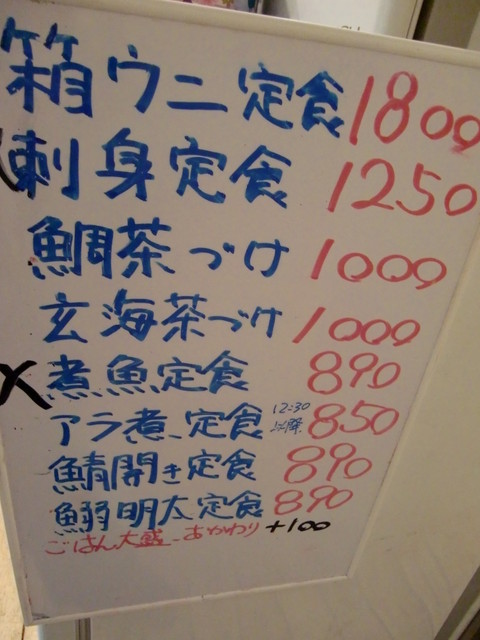 箱ウニ定食 1800
刺身定食 1250
鯛茶づけ 1000
玄海茶づけ 1000
X 煮魚定食 890
アラ煮定食 12:30以降 850
鯖開き定食 890
鰯明太定食 890
ごはん大盛 おかわり +100